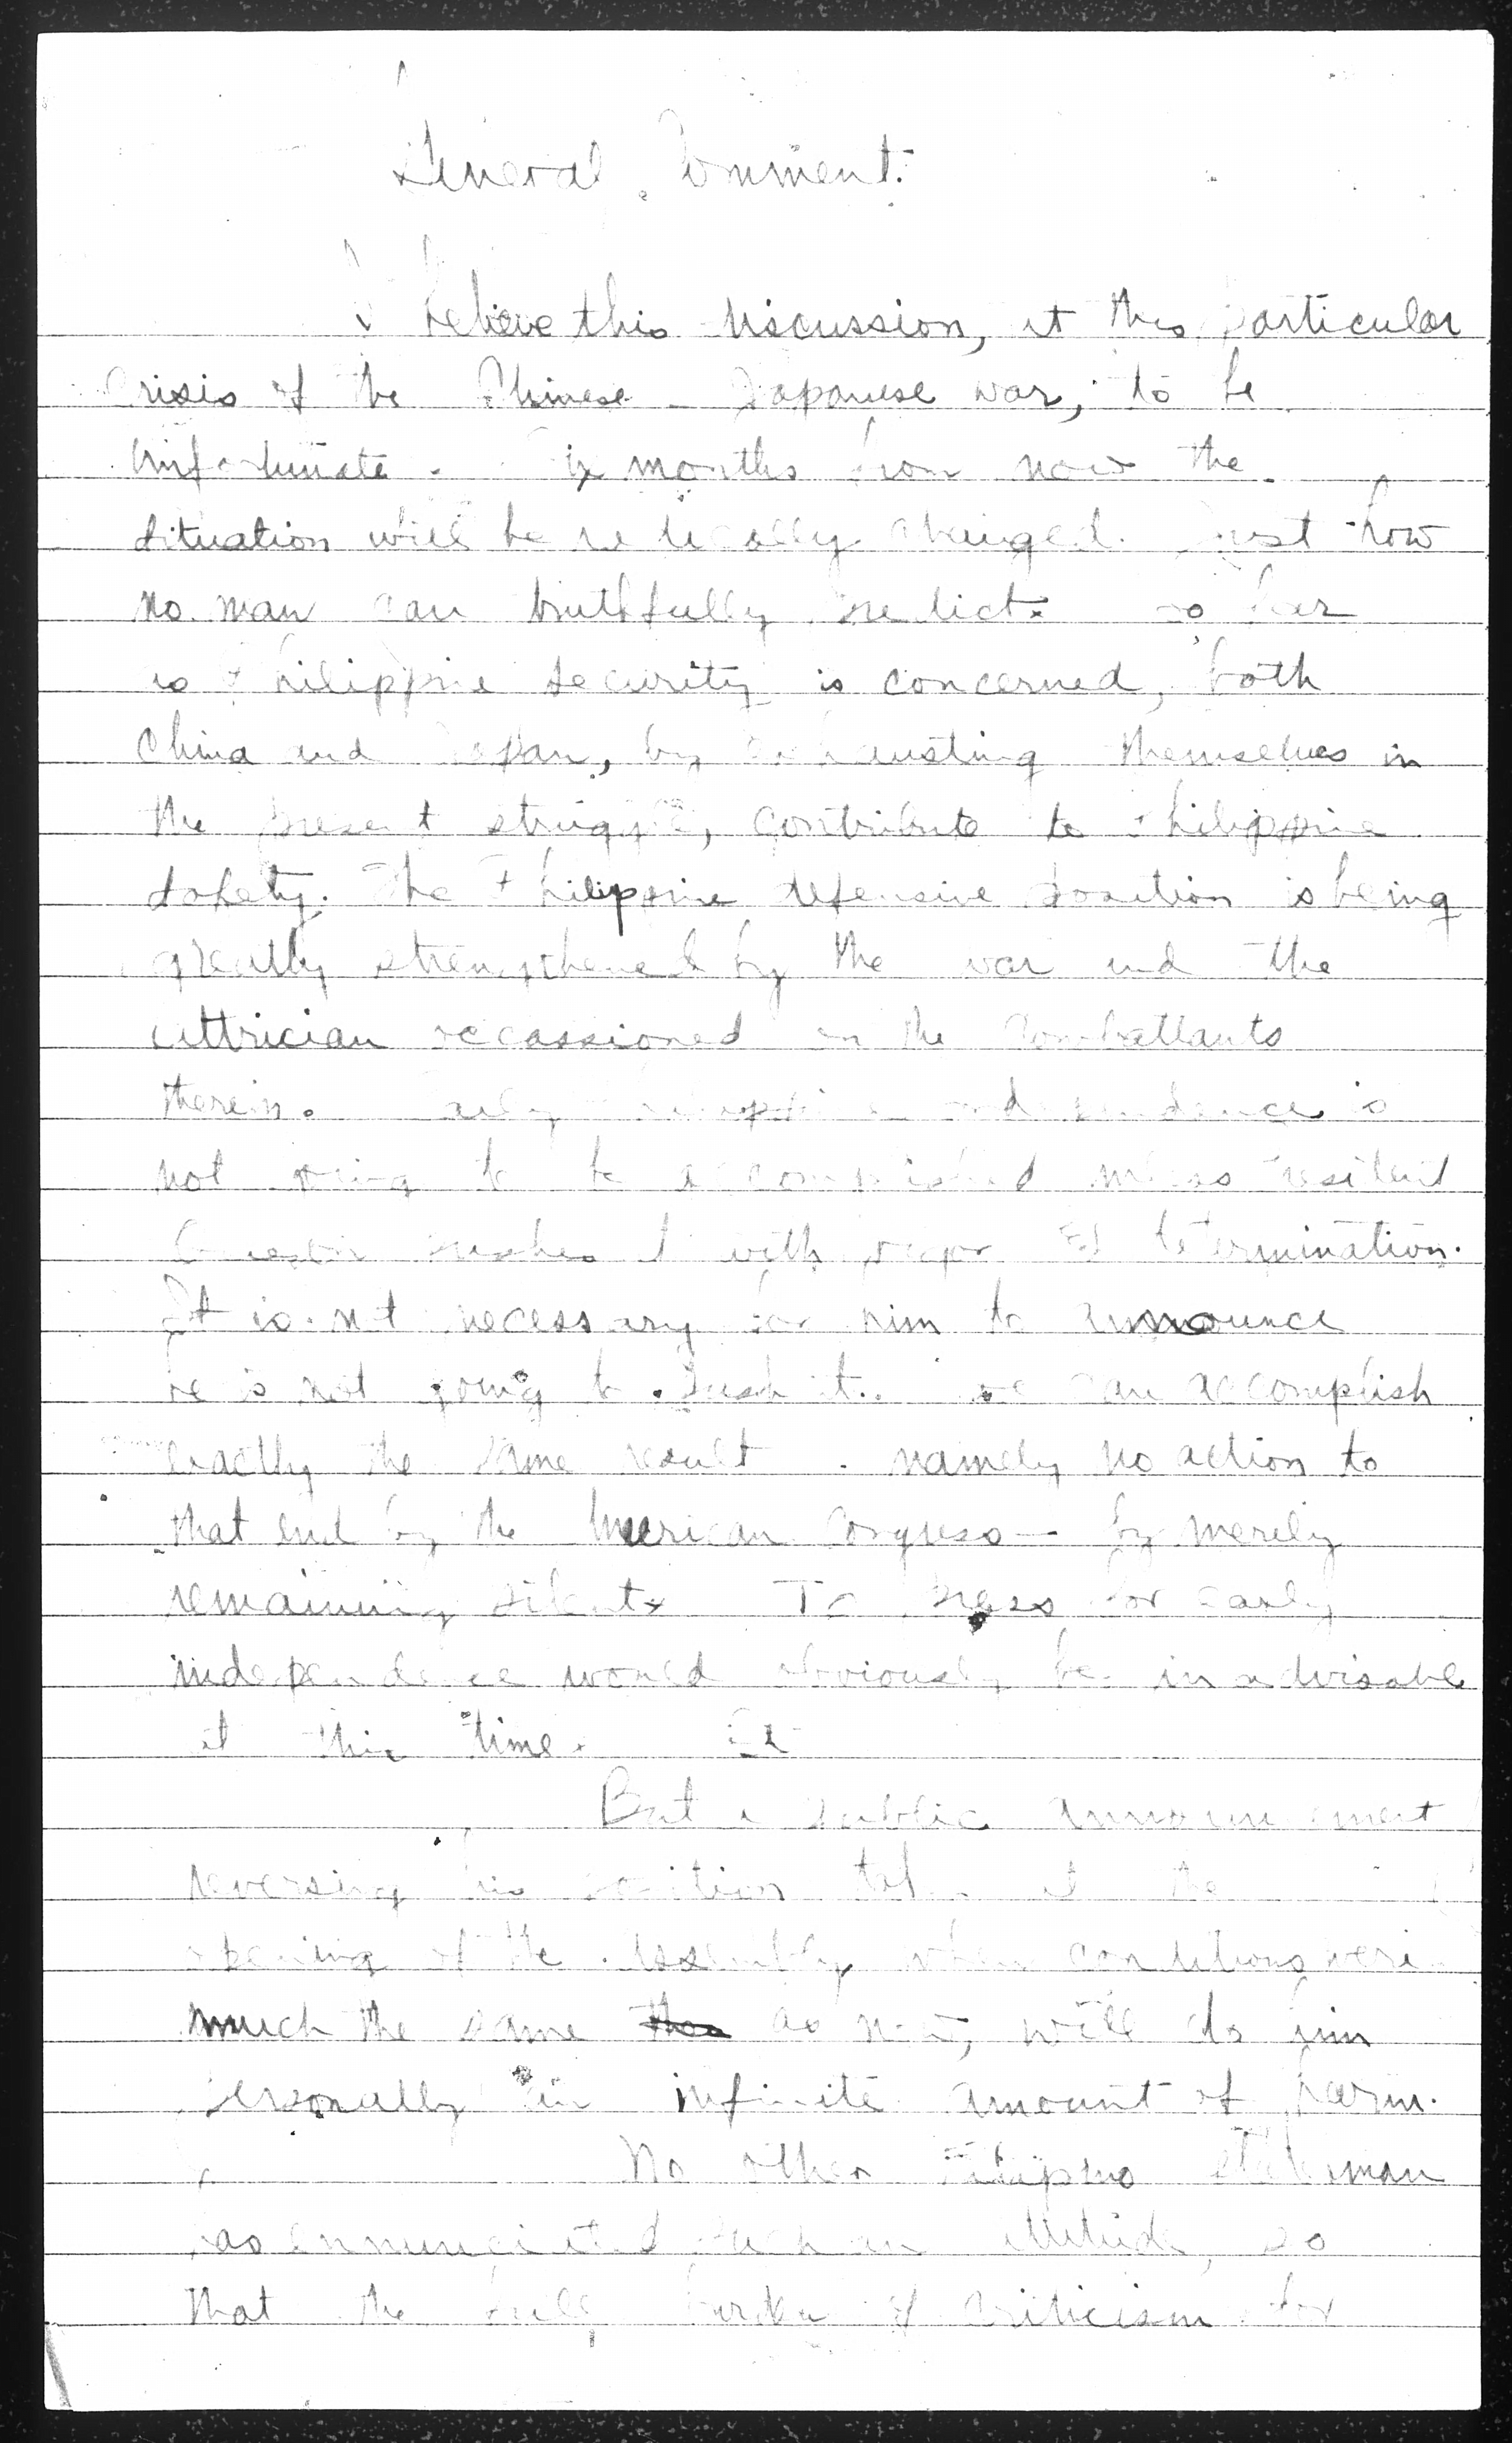 General Comment.
I believe this discussion, at this particular
crisis of the Chinese - Japanese war, to be
unfortunate. Six months from now the
situation will be radically changed. Just how
no man can truthfully predict. So far
as Philippine security is concerned, both
China and Japan, by exhausting themselves in
the present struggle, contribute to Philippine
safety. The Philippine defensive position is being
greatly strengthened by the war and the
attrician occassioned on the combattants
therein. Early Philippine independence is
not going to be accomplished unless President
Quezon pushes it with vigor &amp; determination.
It is not necessary for him to announce
he is not going to push it. He can accomplish
exactly the same result - namely no action to
that end by the American Congress - by merely
remaining silent. To press for early
independence would obviously be inadvisable
at this time.
But a public announcement
reversing his position taken at the
opening of the Assembly when conditions were
much the same as now, will do him
personally an infinite amount of harm.
No other Filipino statesman
has ennunciated such an attitude, so
that the full burden of criticism for